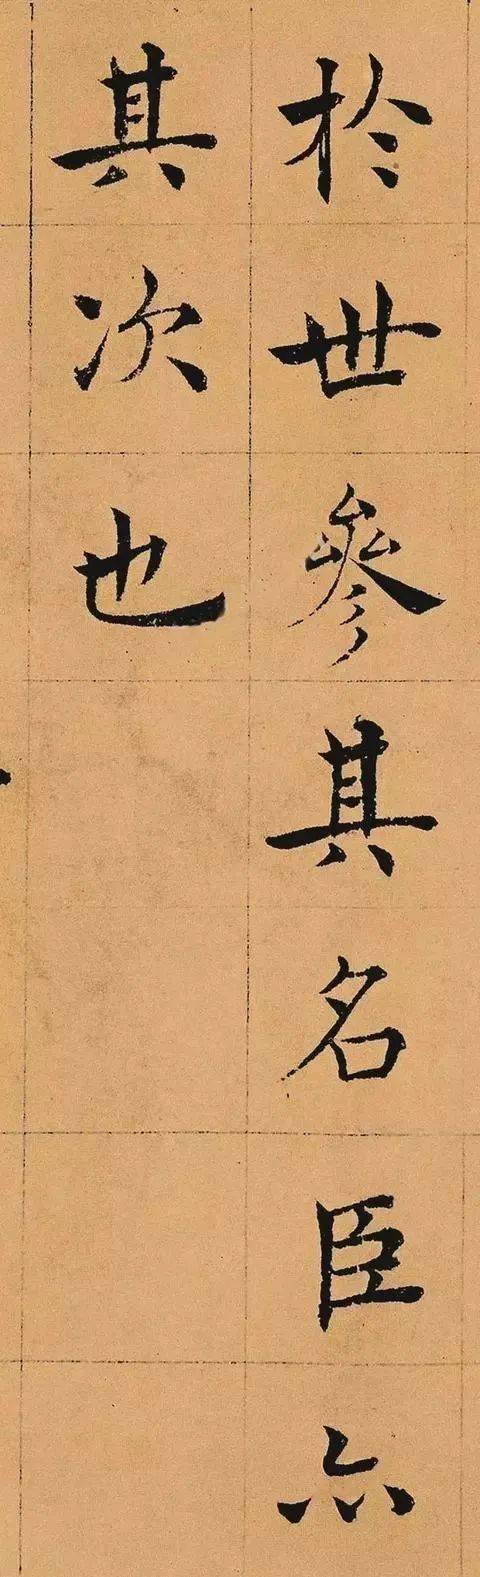 於世參其名臣亦
其次也